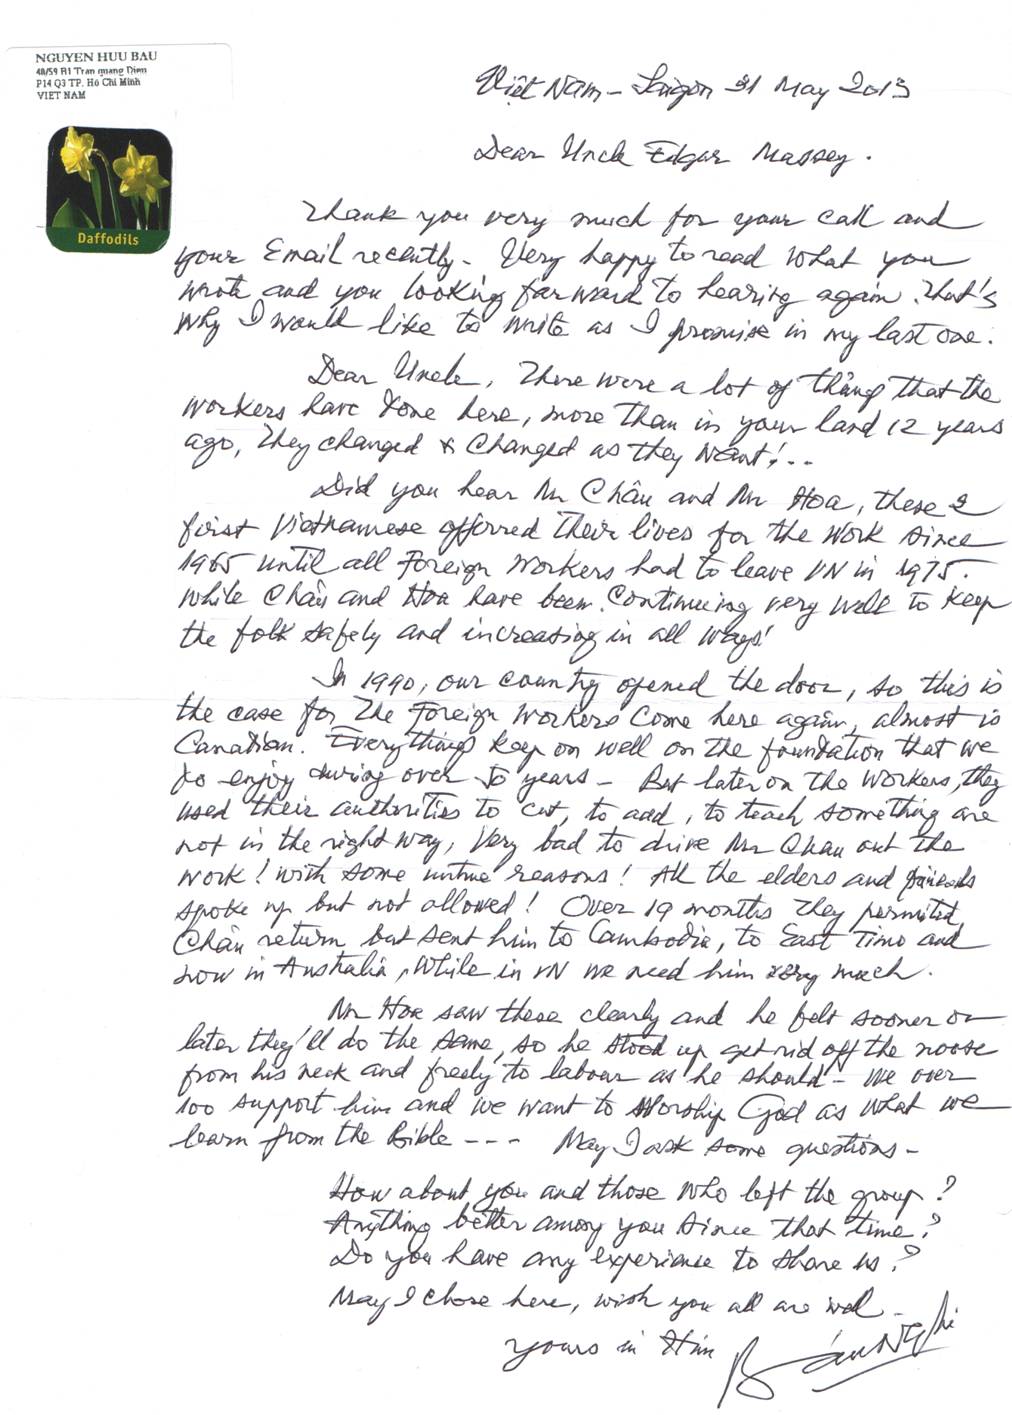 NGUYEN HUU BAU
48/59 B1 Tran quang Dieu
P14 Q3 TP. Ho Chi Minh
VIET NAM
Daffodils
Việt Nam - Saigon 31 May 2013
Dear Uncle Edgar Massey.
Thank you very much for your call and
your Email recently - Very happy to read what you
wrote and you looking forward to hearing again. That's
why I would like to write as I promise in my last one.
Dear Uncle, There were a lot of things that the
workers have done here, more than in your land 12 years
ago, They changed & changed as they want! ..
Did you hear Mr Châu and Mr Hoa, these 2
first Vietnamese offerred their lives for the work since
1965 until all Foreign workers had to leave VN in 1975.
While Châu and Hoa have been continuing very well to keep
the folk safely and increasing in all ways!
In 1990, our country opened the door, so this is
the case for the Foreign workers come here again, almost is
Canadian. Everythings keep on well on the foundation that we
do enjoy during over 50 years - But later on the workers, they
used their authorities to cut, to add, to teach something are
not in the right way, Very bad to drive Mr Chau out the
work! with some untrue reasons! All the elders and friends
spoke up but not allowed! Over 19 months they permitted
Châu return but sent him to Cambodia, to East Timo and
now in Australia, While in VN we need him very much.
Mr Hoa saw these clearly and he felt sooner or
later they'll do the same, so he stood up get rid off the noose
from his neck and freely to labour as he should - We over
100 support him and we want to Worship God as what we
learn from the Bible - - - May I ask some questions -
How about you and those who left the group?
Anything better among you since that time?
Do you have any experience to share us?
May I close here, wish you all are well -
Yours in Him